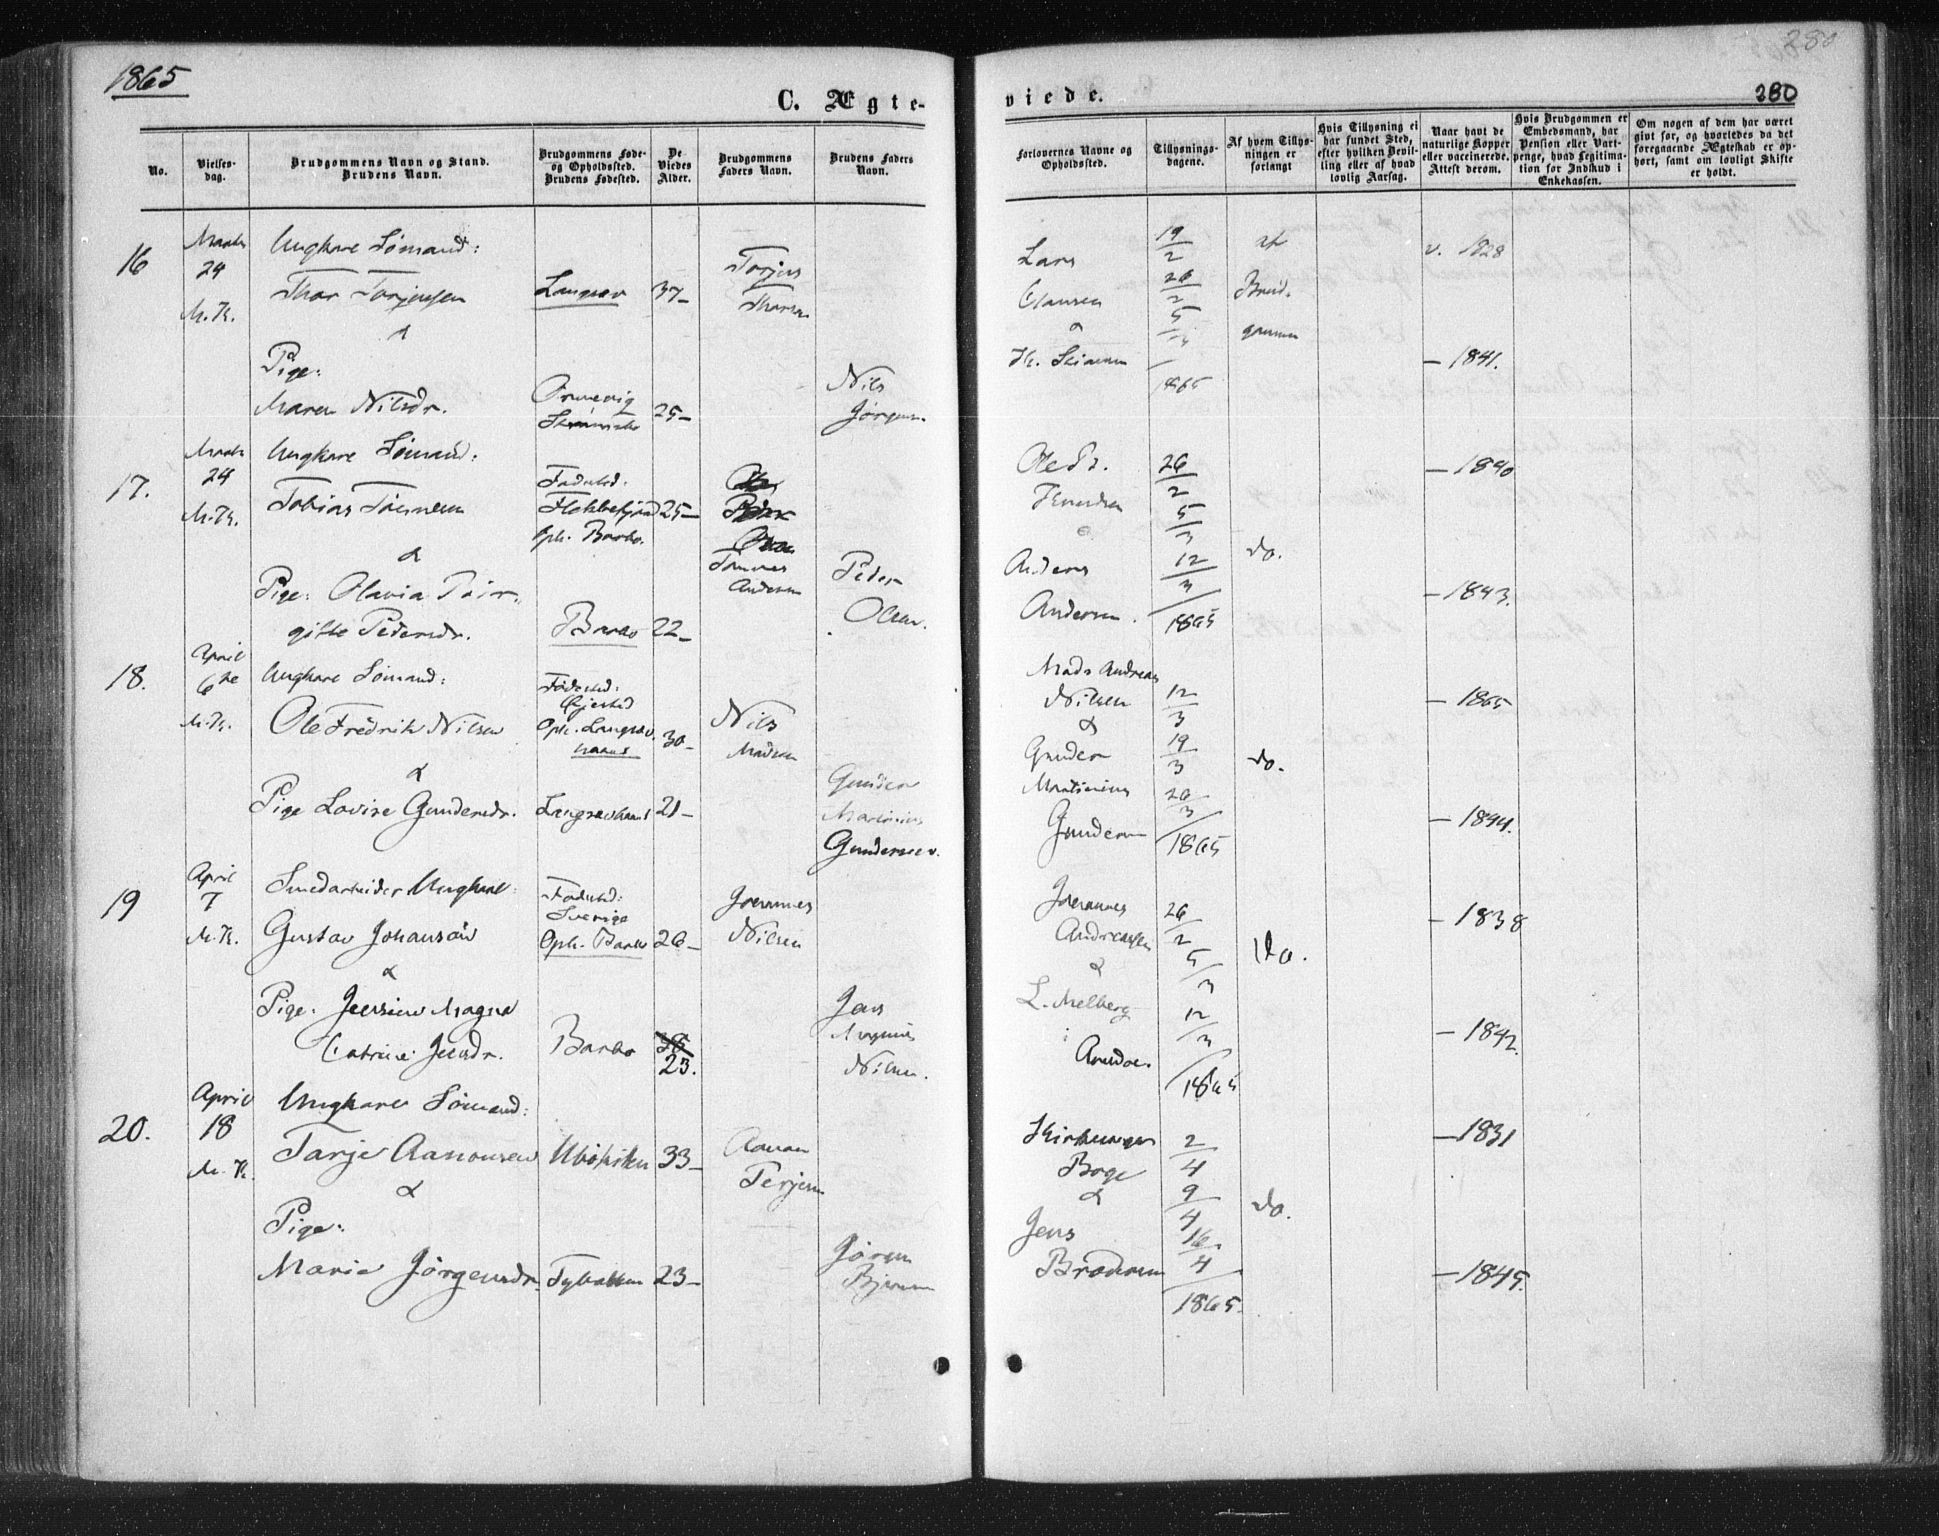 1865
280
C. Ægteviede.
280
No.
Vielses-dag.
Brudgommens Navn og Stand.
Brudens Navn.
Brudgommens Føde- og Opholdssted.
Brudens Fødested.
De Viedes Alder.
Brudgommens Faders Navn.
Brudens Faders Navn.
Forlovernes Navne og Opholdssted.
Tillysnings-dagene.
Af hvem Tillysningen er forlangt
Hvis Tillysning ei har fundet Sted, efter hvilken Bevilling eller af hvad lovlig Aarsag.
Naar havt de naturlige Kopper eller vaccinerede. Attest derom.
Hvis Brudgommen er Embedsmand, har Pension eller Vartpenge, hvad Legitimation for Indskud i Enkekassen.
Om nogen af dem har været gift før, og hvorledes da det foregaaende Ægteskab er ophørt, samt om lovligt Skifte er holdt.
16
24
M.K.
Ungkarl Sømand:
Thor Torjensen
&
Pige:
Maren Nilsdr.
37-
25-
Nils
Lars
Clausen
&
19/2
26/2
5/3
1865
af
Brud-
gommen
v. 1828
- 1841.
17.
24
M.K.
Ungkarl Sømand:
Tobias
&
Pige: Olavia
gitte Pedersdr.
Fødested:
Oph. Barbo.
25-
Barbo
22-
Andersen
Peder
Olsen.
26/2
5/3
12/3
1865
Anders
Andersen.
do.
- 1840
- 1843.
18.
April
6te
M.K.
Ungkarl Sømand:
Ole Fredrik Nilsen
&
Pige Lovise Gundersdr.
Fødested:
Gjerstad
30-
21-
Nils
Madsen
Gunder
Martinius
Gundersen.
Mads Andreas
Nilsen
&
Gunder
Martinius
12/3
19/3
26/3
1865
do.
- 1865
- 1844.
19
April
7
M.K.
Smedarbeider Ungkarl
Gustav Johanson
&
Pige.
Catrine Jensdr.
Fødested:
Sverige
Oph. Barbo
26-
Barbo
23.
Johannes
Nilsen
Jens
Magnus
Nilsen.
Johannes
Andreassen
&
L. Melberg
i
26/2
5/3
12/3
1865
Do.
- 1838
- 1842.
20.
April
18
M.K.
Ungkarl Sømand:
Tarje Aanonsen
&
Pige:
Marie Jørgensdr.
33-
23-
Aanon
Terjesen
Jørgen
2/4
9/4
16/4
1865.
&
Jens
do.
- 1831
- 1845.